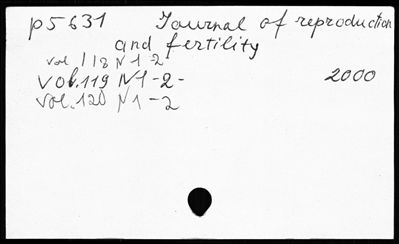 p5631 Journal of reproduction
and fertility
vol 118 N 1-2
vol.119 N1-2- 2000
vol.120 N1-2